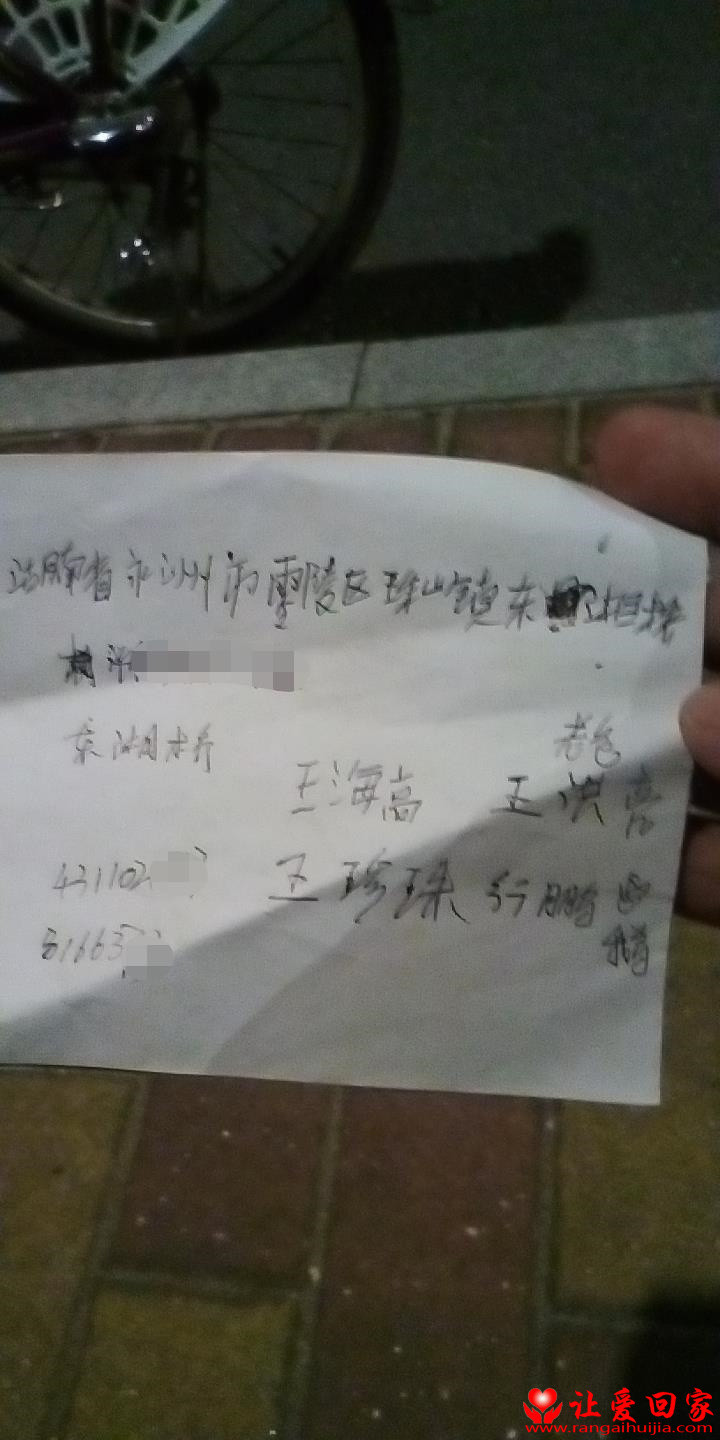 湖南省永州市零陵区珠山镇东湘桥
东湖桥
老爸
王海高 王洪亮
431102
王珍珠
51663
让爱回家
www.rangaihuijia.com